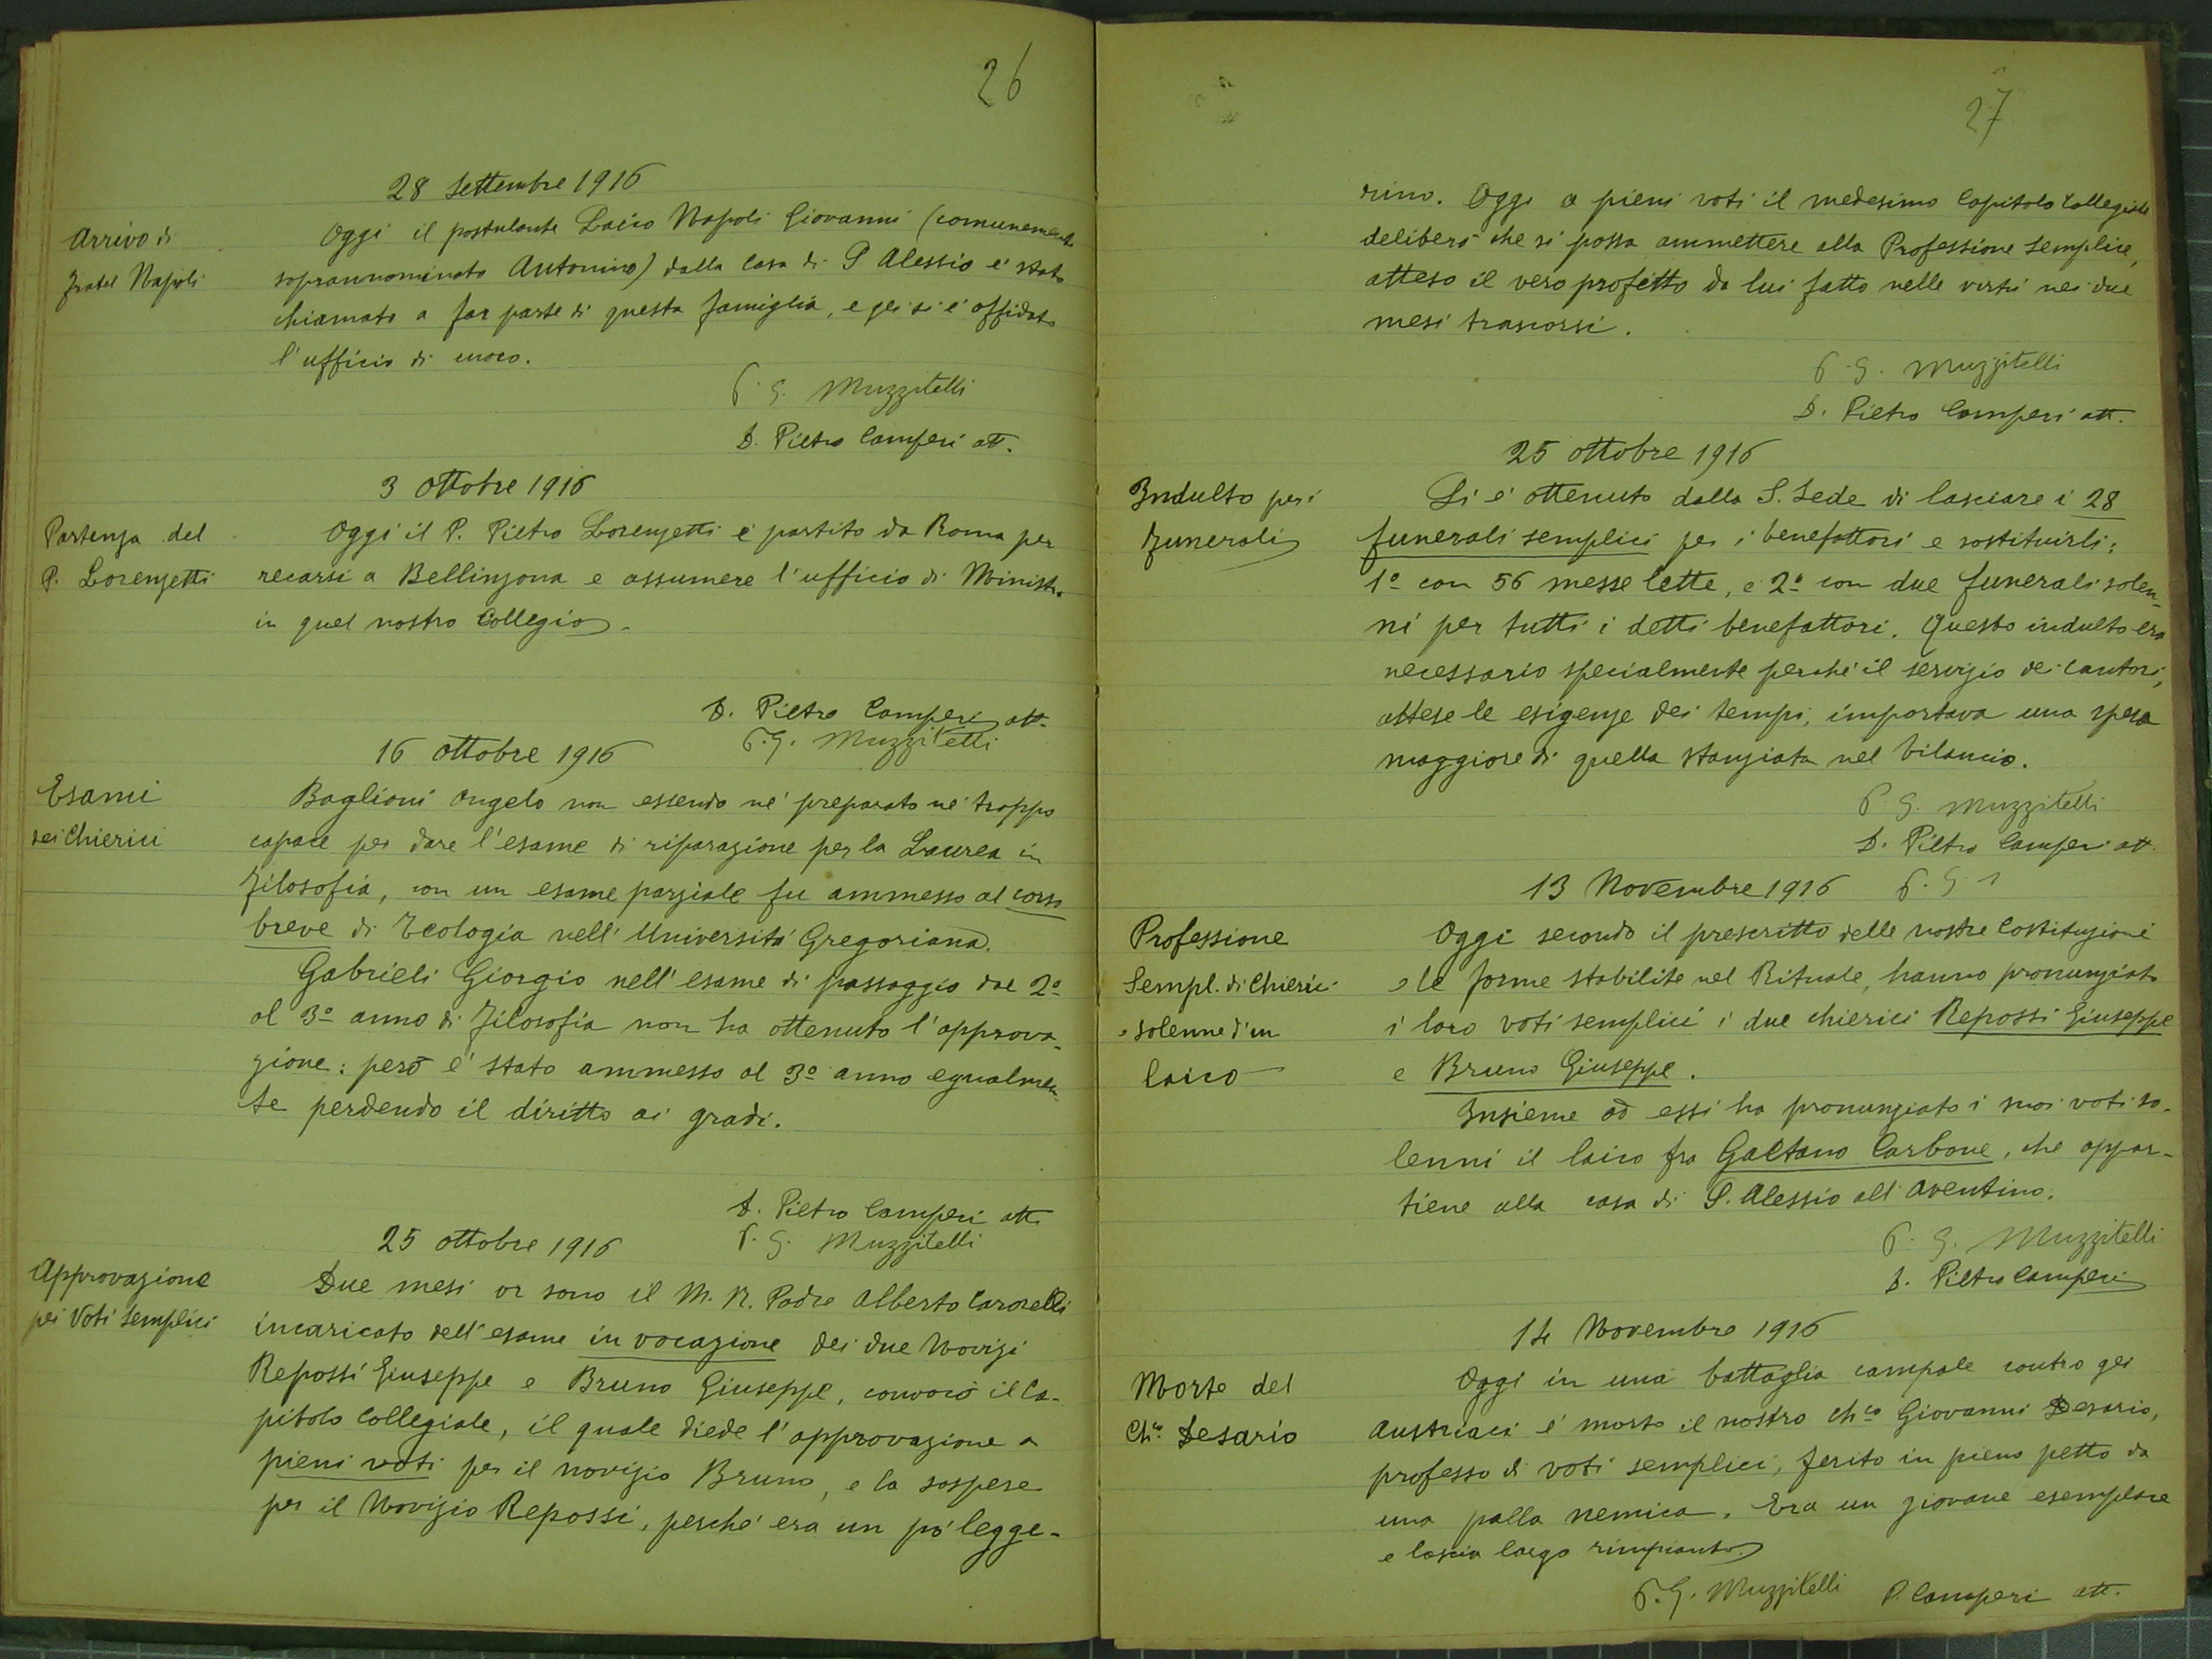 26
28 Settembre 1916
Arrivo di
fratel Napoli
Oggi il postulante Laico Napoli Giovanni (comunemente
soprannominato Antonino) dalla casa di S Alessio è stato
chiamato a far parte di questa famiglia, e gli si è affidato
l'ufficio di cuoco.
P. G. Muzzitelli
D. Pietro Camperi att.
3 Ottobre 1916
Partenza del
P. Lorenzetti
Oggi il P. Pietro Lorenzetti è partito da Roma per
recarsi a Bellinzona e assumere l'ufficio di Ministro
in quel nostro Collegio.
D. Pietro Camperi att.
P. G. Muzzitelli
16 ottobre 1916
Esami
dei Chierici
Baglioni Angelo non essendo nè preparato nè troppo
capace per dare l'esame di riparazione per la Laurea in
Filosofia, con un esame parziale fu ammesso al corso
breve di Teologia nell'Università Gregoriana.
Gabrieli Giorgio nell'esame di passaggio dal 2º
al 3º anno di Filosofia non ha ottenuto l'approva-
zione: però è stato ammesso al 3º anno egualmen-
te perdendo il diritto ai gradi.
D. Pietro Camperi att.
P. G. Muzzitelli
25 ottobre 1916
Approvazione
pei Voti Semplici
Due mesi or sono il M. R. Padre Alberto Carorelli
incaricato dell'esame in vocazione dei due Novizi
Repossi Giuseppe e Bruno Giuseppe, convocò il Ca-
pitolo Collegiale, il quale diede l'approvazione a
pieni voti per il novizio Bruno, e la sospese
per il Novizio Repossi, perchè era un pò legge-
27
rino. Oggi a pieni voti il medesimo Capitolo Collegiale
deliberò che si possa ammettere alla Professione semplice,
atteso il vero profitto da lui fatto nelle virtù nei due
mesi trascorsi.
P. G. Muzzitelli
D. Pietro Camperi att.
25 ottobre 1916
Indulto pei
Funerali
Si è ottenuto dalla S. Sede di lasciare i 28
funerali semplici per i benefattori e sostituirli:
1º con 56 messe lette, e 2º con due funerali solen-
ni per tutti i detti benefattori. Questo indulto era
necessario specialmente perchè il servizio dei cantori,
attese le esigenze dei tempi, importava una spesa
maggiore di quella stanziata nel bilancio.
P. G. Muzzitelli
D. Pietro Camperi att.
13 Novembre 1916 P. G
Professione
Sempl. di Chierici
e solenne d'un
laico
Oggi secondo il prescritto delle nostre Costituzioni
e le forme stabilite nel Rituale, hanno pronunziato
i loro voti semplici i due chierici Repossi Giuseppe
e Bruno Giuseppe.
Insieme ad essi ha pronunziato i suoi voti so-
lenni il laico fra Gaetano Carbone, che appar-
tiene alla casa di S. Alessio all'Aventino.
P. G. Muzzitelli
D. Pietro Camperi
14 Novembre 1916
Morte del
Ch.co Desario
Oggi in una battaglia campale contro gli
Austriaci è morto il nostro ch.co Giovanni Desario,
professo di voti semplici, ferito in pieno petto da
una palla nemica. Era un giovane esemplare
e lascia largo rimpianto.
P. G. Muzzitelli P. Camperi att.